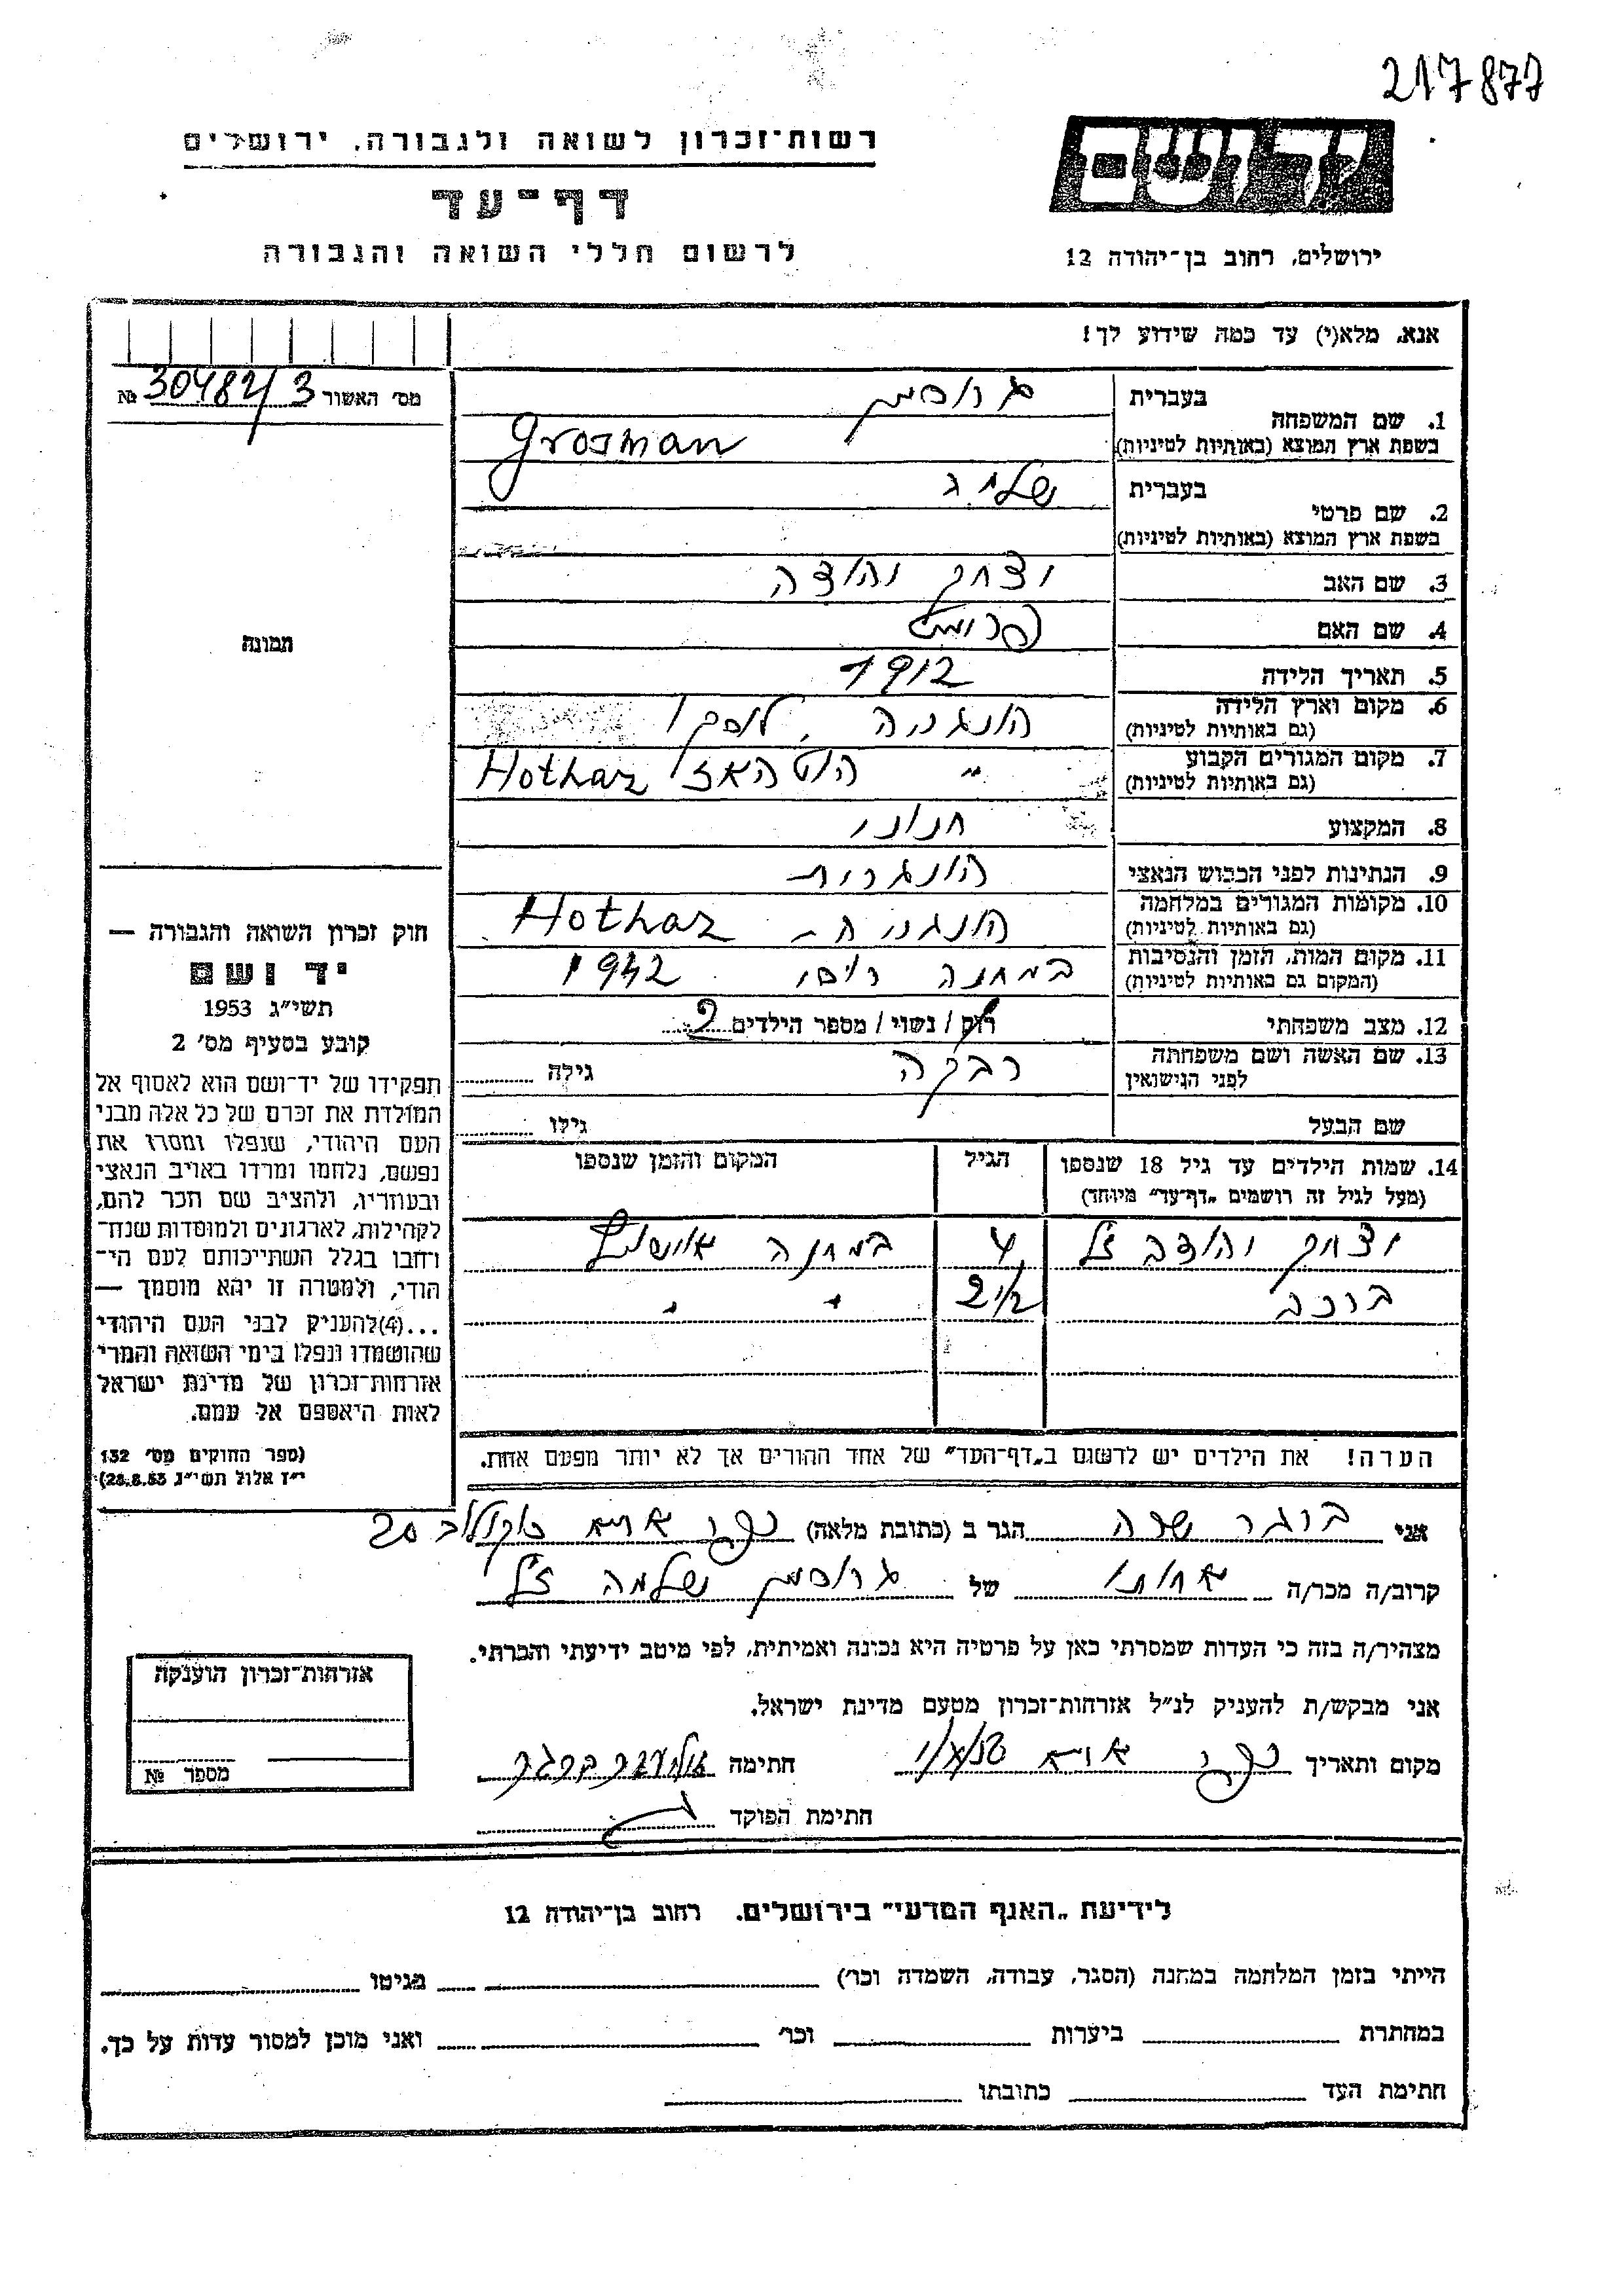 217877
רשות־זכרון לשואה ולגבורה, ירושלים
דף־עד
לרשום חללי השואה והגבורה
ידושם
ירושלים, רחוב בן־יהודה 12
אנא, מלא(י) עד כמה שידוע לך!
מס׳ האשור 30482/3 №
1. שם המשפחה
בעברית גרוסמן
בשפת ארץ המוצא (באותיות לטיניות) Grosman
2. שם פרטי
בעברית
בשפת ארץ המוצא (באותיות לטיניות)
3. שם האב יצחק יהודה
4. שם האם
5. תאריך הלידה 1912
6. מקום וארץ הלידה הונגריה
(גם באותיות לטיניות)
7. מקום המגורים הקבוע ״ Hothaz
(גם באותיות לטיניות)
8. המקצוע חנוני
9. הנתינות לפני הכבוש הנאצי הונגרית
10. מקומות המגורים במלחמה Hothaz
(גם באותיות לטיניות)
11. מקום המות, הזמן והנסיבות במחנה 1942
(המקום גם באותיות לטיניות)
12. מצב משפחתי רוק / נשוי / מספר הילדים 2
13. שם האשה ושם משפחתה רבקה גילה
לפני הנישואין
שם הבעל גילו
14. שמות הילדים עד גיל 18 שנספו הגיל המקום והזמן שנספו
(מעל לגיל זה רושמים „דף־עד״ מיוחד)
יצחק יהודה ז״ל 4 במחנה
2 1/2 ״ ״
הערה! את הילדים יש לרשום ב„דף־העד״ של אחד ההורים אך לא יותר מפעם אחת.
תמונה
חוק זכרון השואה והגבורה —
יד ושם
תשי״ג 1953
קובע בסעיף מס׳ 2
תפקידו של יד־ושם הוא לאסוף אל
המולדת את זכרם של כל אלה מבני
העם היהודי, שנפלו ומסרו את
נפשם, נלחמו ומרדו באויב הנאצי
ובעוזריו, ולהציב שם וזכר להם,
לקהילות, לארגונים ולמוסדות שנח־
רחבו בגלל השתייכותם לעם הי־
הודי, ולמטרה זו יהא מוסמך —
...(4)להעניק לבני העם היהודי
שהושמדו ונפלו בימי השואה והמרי
אזרחות־זכרון של מדינת ישראל
לאות היאספם אל עמם.
(ספר החוקים מס׳ 132
י״ז אלול תשי״ג 28.8.53)
אני בוגר שרה הגר ב (כתובת מלאה) כפר אתא 20
קרוב/ה מכר/ה אחותו של גרוסמן שלמה ז״ל
מצהיר/ה בזה כי העדות שמסרתי כאן על פרטיה היא נכונה ואמיתית, לפי מיטב ידיעתי והכרתי.
אני מבקש/ת להעניק לנ״ל אזרחות־זכרון מטעם מדינת ישראל.
מקום ותאריך כפר אתא חתימה
חתימת הפוקד
אזרחות־זכרון הוענקה
מספר №
לידיעת „האגף המדעי״ בירושלים, רחוב בן־יהודה 12
הייתי בזמן המלחמה במחנה (הסגר, עבודה, השמדה וכר׳) בגיטו
במחתרת ביערות וכר׳ ואני מוכן למסור עדות על כך.
חתימת העד כתובתו